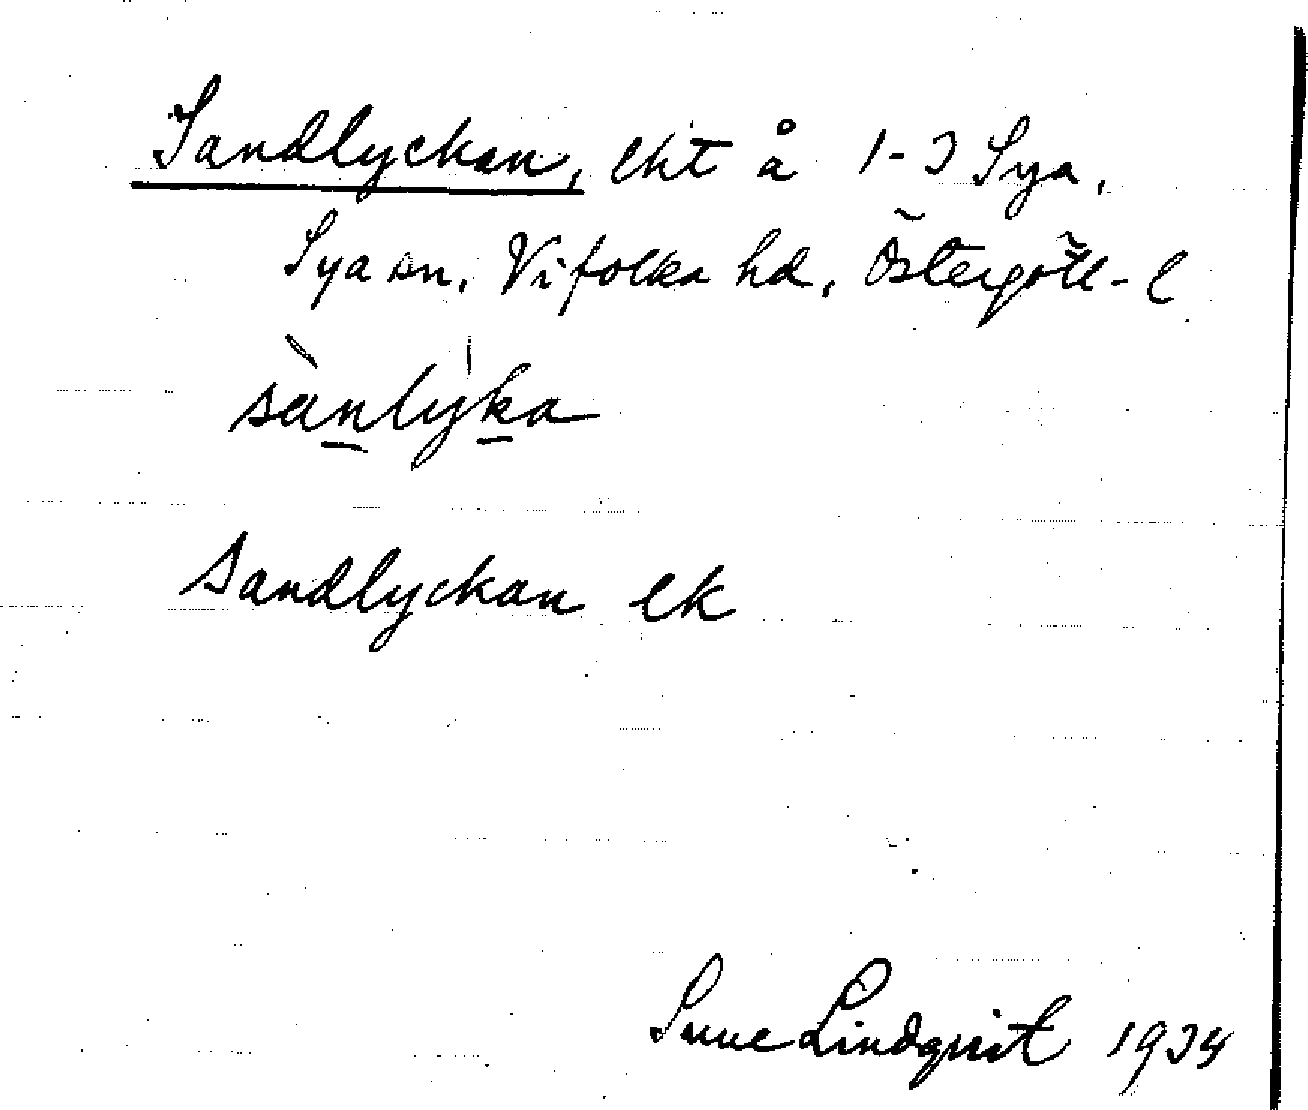 Sandlyckan, lht å 1-3 Sya,
Sya sn, Vifolka hd, Östergötl-l
sànlýka
Sandlyckan ek
Sune Lindqvist 1934